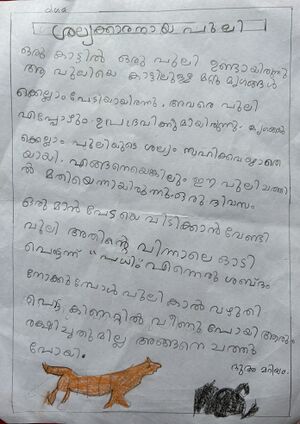 ശല്യക്കാരനായ പുലി
ഒരു കാട്ടിൽ ഒരു പുലി ഉണ്ടായിരുന്നു
ആ പുലിയെ കാട്ടിലുള്ള മറ്റു മൃഗങ്ങൾ
ക്കെല്ലാം പേടിയായിരുന്നു. അവരെ പുലി
എപ്പോഴും ഉപദ്രവിക്കുമായിരുന്നു. മൃഗങ്ങൾ
ക്കെല്ലാം പുലിയുടെ ശല്യം സഹിക്കവയ്യാതെ
യായി. എങ്ങനെയെങ്കിലും ഈ പുലി ചത്താ
ൽ മതിയെന്നായിരുന്നു. ഒരു ദിവസം
ഒരു മാൻ പേടയെ പിടിക്കാൻ വേണ്ടി
പുലി അതിന്റെ പിന്നാലെ ഓടി
പെട്ടെന്ന് "പധീം" എന്നൊരു ശബ്ദം
നോക്കുമ്പോൾ പുലി കാൽ വഴുതി
കിണറ്റിൽ വീണു പോയി ആരും
രക്ഷിച്ചതുമില്ല അങ്ങനെ ചത്തു
പോയി.
മറിയം.